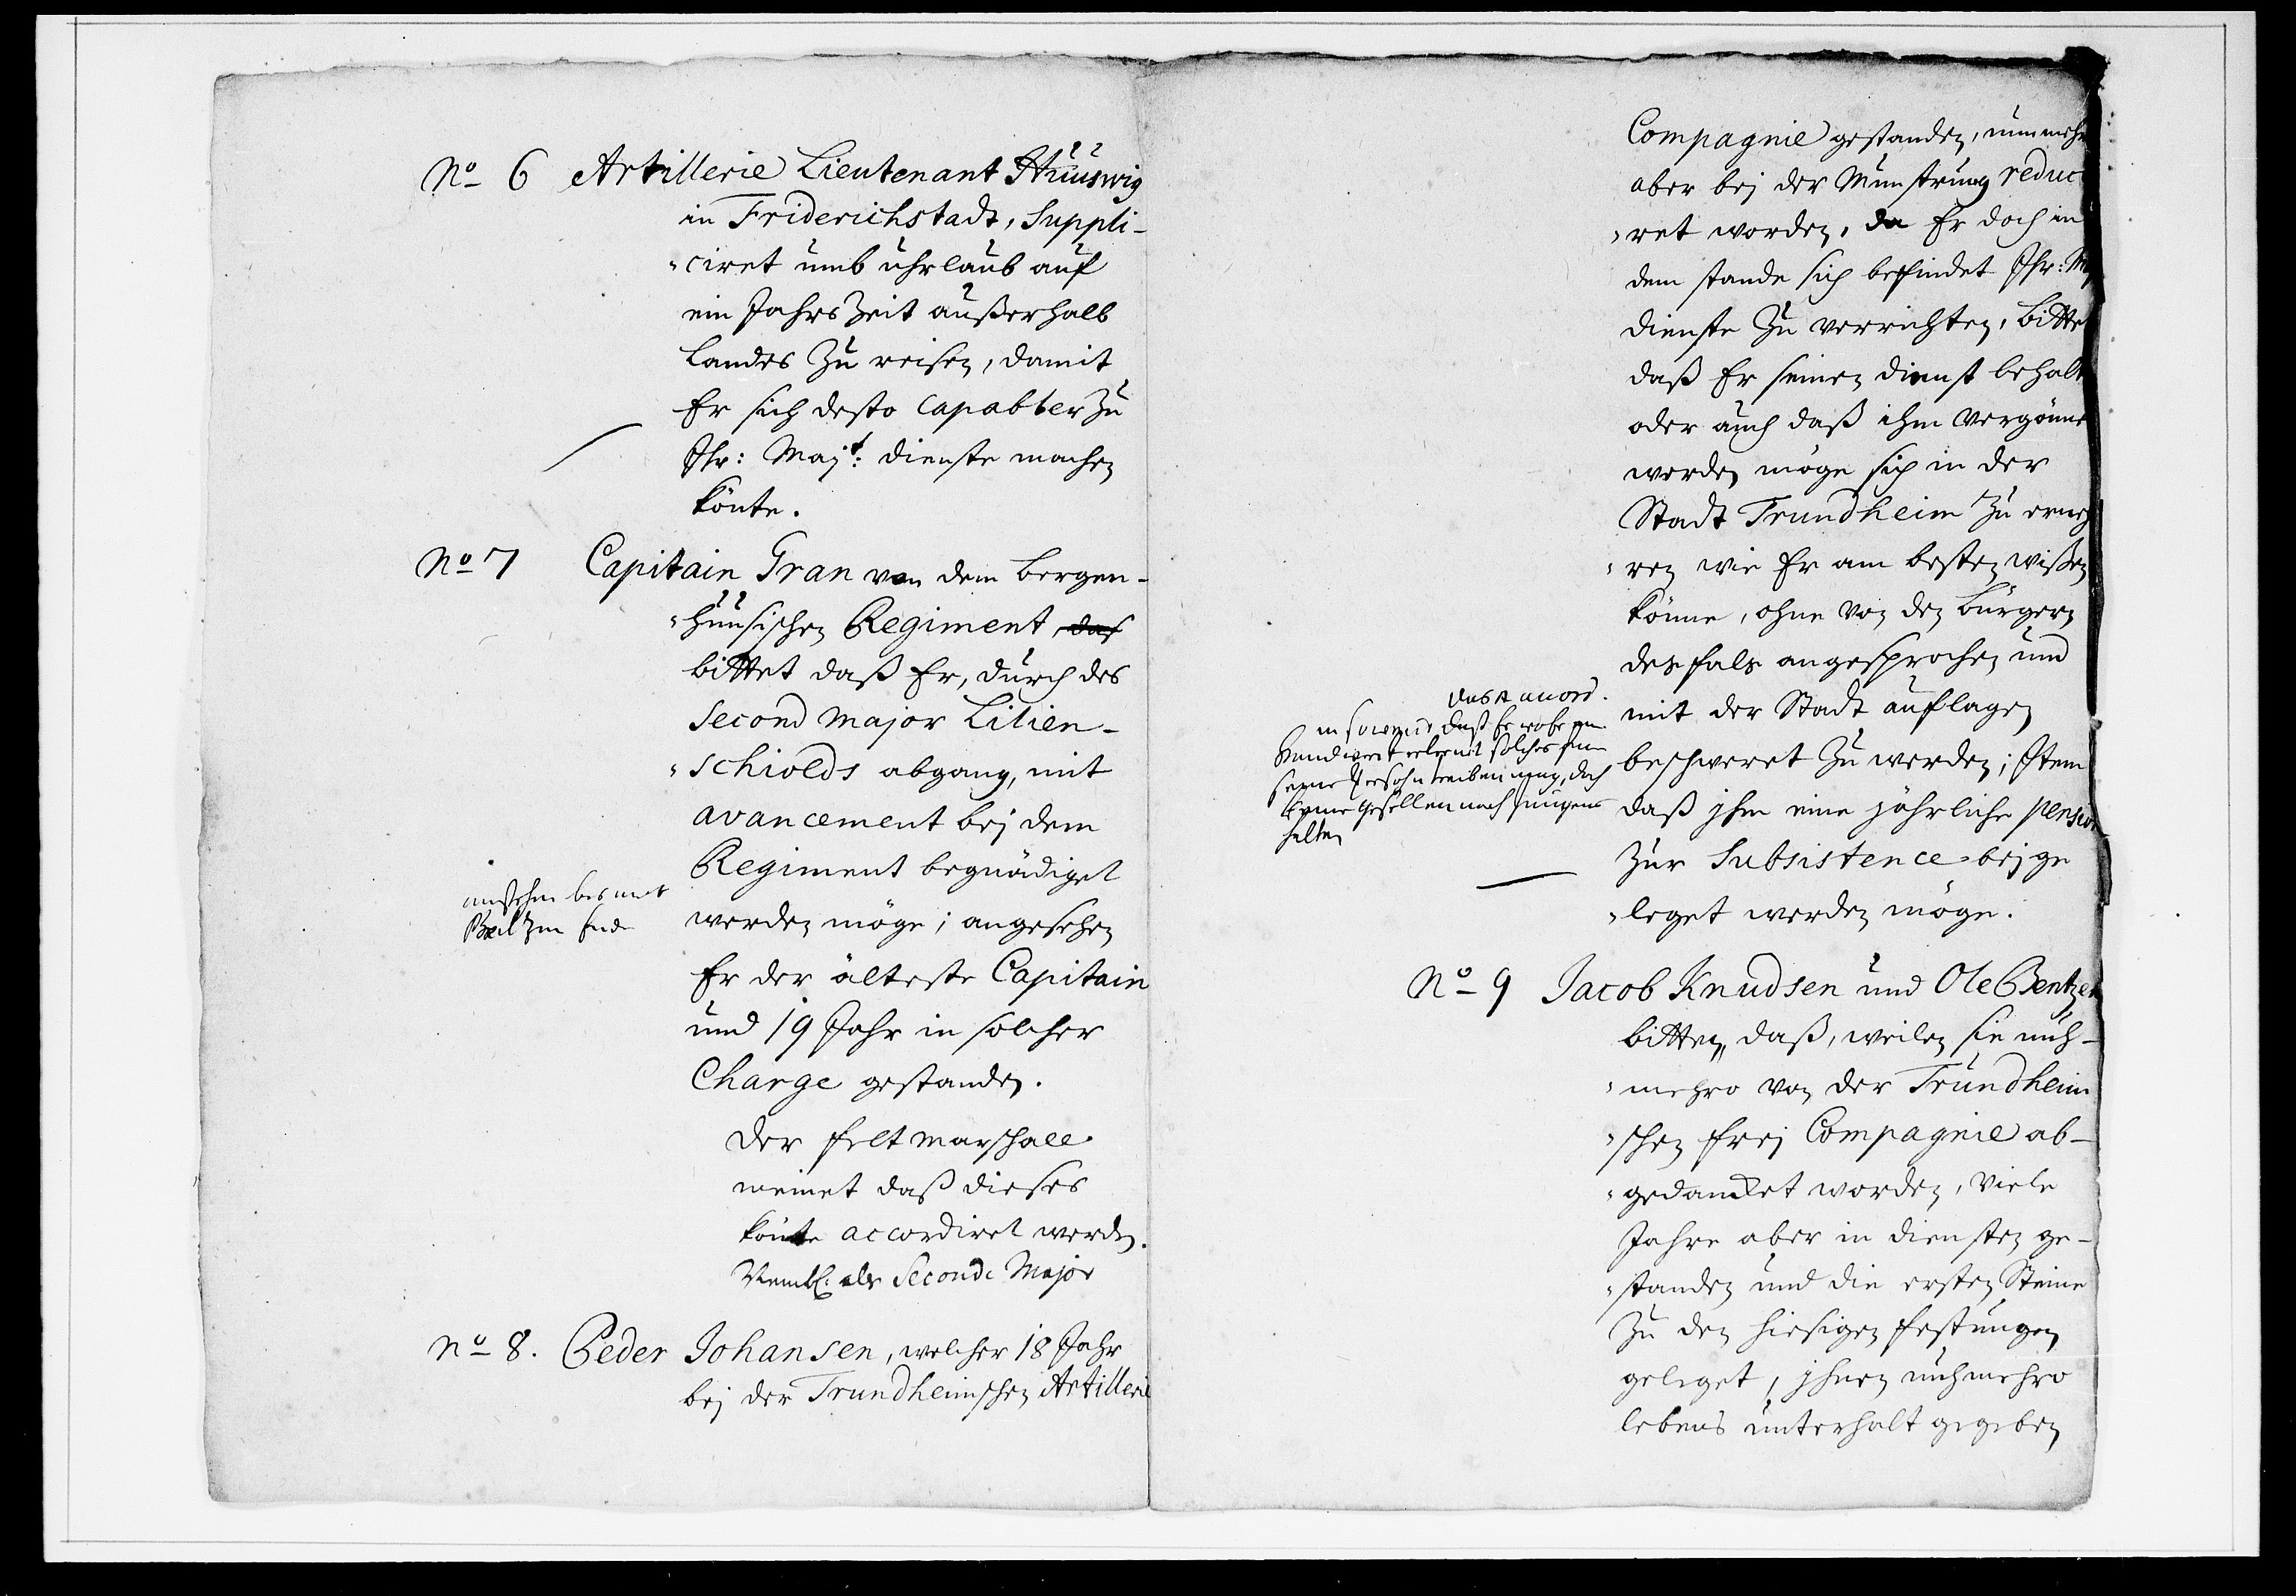 No 6 Artillerie Lieutenant Huuswig
in Friderichstadt, Suppli-
ciret umb uhrlaub auf
ein Jahrs Zeit außerhalb
Landes Zu reisen, damit
Er sich desto capabler Zu
Ihr: Majt: dienste machen
könte.
No 7 Capitain Gran von dem Bergen-
huusischen Regiment das
bittet daß Er, durch des
Second Major Lilien-
schiolds abgang, mit
avancement bej dem
Regiment begnädiget
werden möge; angesehen
Er der älteste Capitain
und 19 Jahr in solcher
Charge gestanden.
Der Feltmarschall
meinet daß dieses
könte accordiret werden.
als Seconde Major
No 8. Peder Johansen, welcher 18 Jahr
bej der Trundheimschen Artillerie
Compagnie gestanden, nunmehr
aber bej der Munstrung reduc
ret worden, da Er doch in
dem stande sich befindet Ihr: Maj
dienste Zu verrichten, bittet
daß Er seinen dienst behalt
oder auch daß ihm vergönne
werden möge sich in der
Stadt Trundheim Zu erneh
ren wie Er am besten wißen
könne, ohne von den bürgern
desfals angesprochen und
mit der Stadt auflagen
beschweret Zu werden; Item
daß jhm eine jährliche pension
Zur Subsistence beyge
leget werden möge.
daß Er
solches
seine Persohn treiben mag, doch
keine gesellen noch jungens
halten
No 9 Jacob Knudsen und Ole Bentzen
bitten, daß, weilen sie nuh-
mehro von der Trundheim
schen frej Compagnie ab-
gedancket worden, viele
Jahre aber in diensten ge-
standen und die ersten Steine
Zu den hiesigen festungen
geleget, jhnen nuhmehro
lebens unterhalt gegeben